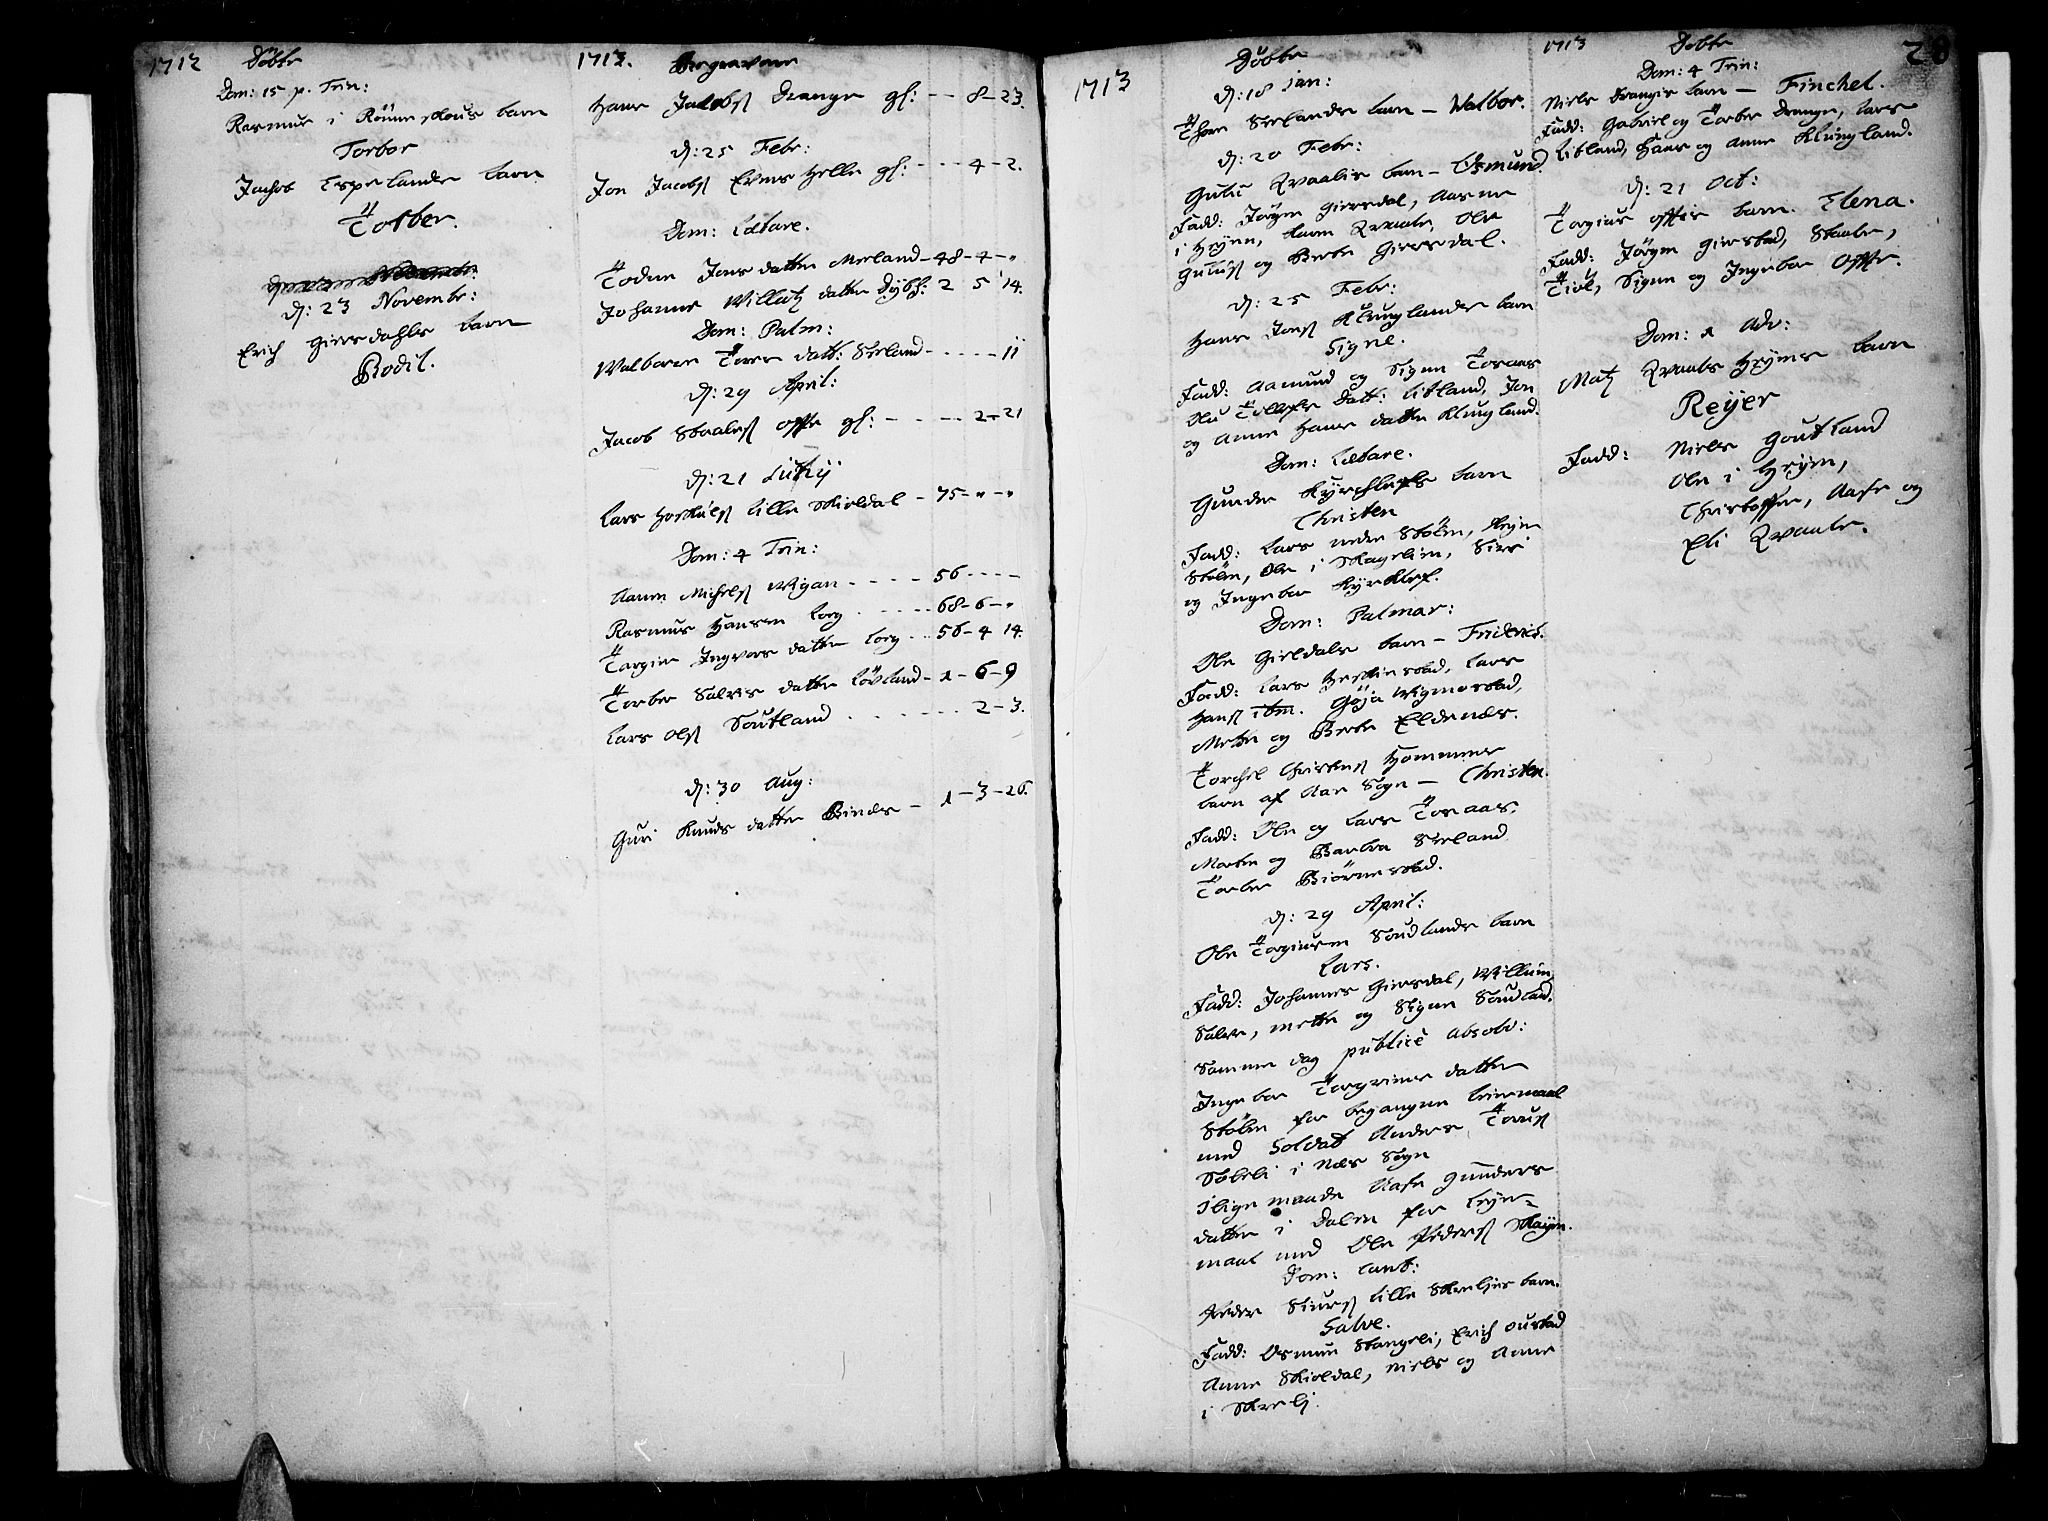 1712
Döbte
Dom: 15 p. Trin:
Rasmus i barn
Torbor
Jachob Espelands barn
Torber.
d: 23 Novembr:
Erich Giersdahls barn
Bodil.
1713. Begravne
Hans Jacobs Drange gl: -- 8-23.
d: 25 Febr:
Jon Jacobs Helle gl: - -- 4-2.
Dom: Lætare.
Todne Jons datter Meeland - 48-4-"
Johanne Willatz datter 2 5 14.
Dom: Palm:
Walborer Tores datt: Seeland ----- 11
d: 29 April:
Jacob Staales offte gl: - --- 2-21
d: 21 Julij
Lars Lille Skieldal - 75-"-"
Dom: 4 Trin:
Aanen Michels Wigan ---- 56 ----
Rasmus Hansen Loeg ----- 68-6-"
Torgier Ingvors datter Loeg -- 56-4 14.
Torber Salves datter Lövland - 1-6-9
Lars Ols Soutland ------- 2-3.
d: 30 Aug:
Guri Knuds datter Bindes - 1-3-26.
1713
Döbte
d: 18 Jan:
Thore Seelands barn - Walbor.
d: 20 Febr:
Gulu Qvaalis barn - Osmund.
Fadd: Jörgen Giersdal, Aasne
i Heyen, Karen Qvaale, Ole
Guluss og Berte Giersdal.
d: 25 Febr:
Hans Jons Klunglands barn
Signe.
Fadd: Aamund og Signe Tosaas
Olu Tollefs datt: Litland, Jon
og Anne Hans datter Klungland.
Dom: Lætare.
Gunder Kyrcklefs barn
Christen
Fadd: Lars nedre Stölen,
Stölen, Ole i Siri
og Ingebor Kyrklef.
Dom: Palmar:
Ole Gieldals barn - Friderich.
Fadd: Lars Hestnestad, Lars
Hans ibm. Göja Wigmostad,
Mette og Berte Eldenæs.
Torchel Christens Hommens
barn af Aae Sogn - Christen.
Fadd: Ole og Lars Tosaas,
Morten og Barbra Seeland
Torber Biörnestad.
d: 29 April:
Ole Torgiusen Soudlands barn
Lars.
Fadd: Johannes Giersdal, Willum,
Salve, Mette og Signe Soudland.
Samme dag publicè absolv:
Ingebor Torgrims datter
Stölen for begangne leiermaal
med Soldat Anders Torus
Söleli i Næs Sogn
ilige maade Aase Gunders
datter i Dalen for Leyer=
maal med Ole Peders Skaym.
Dom: Cant:
Peder Siurs Lille Skreljes barn.
Salve.
Fadd: Osmun Stangeli, Erich Oustad
Anne Skieldal, Niels og Anne
i Skrelj.
1713
Döbte
20
Dom: 4 Trin:
Niels Dranges barn - Finchel.
Fadd: Gabriel og Torber Drange, Lars
Litland, Hans og Anne Klungland.
d: 21 Oct:
Torgius offtes barn. Elena.
Fadd: Jörgen Gierstad, Staale,
Tiöl, Signe og Ingebor Offte.
Dom: 1 Adv:
Matz Qvaals Heyens barn
Reyer
Fadd: Niels Goutland
Ole i Heyen,
Christoffer, Aase og
Eli Qvaale.